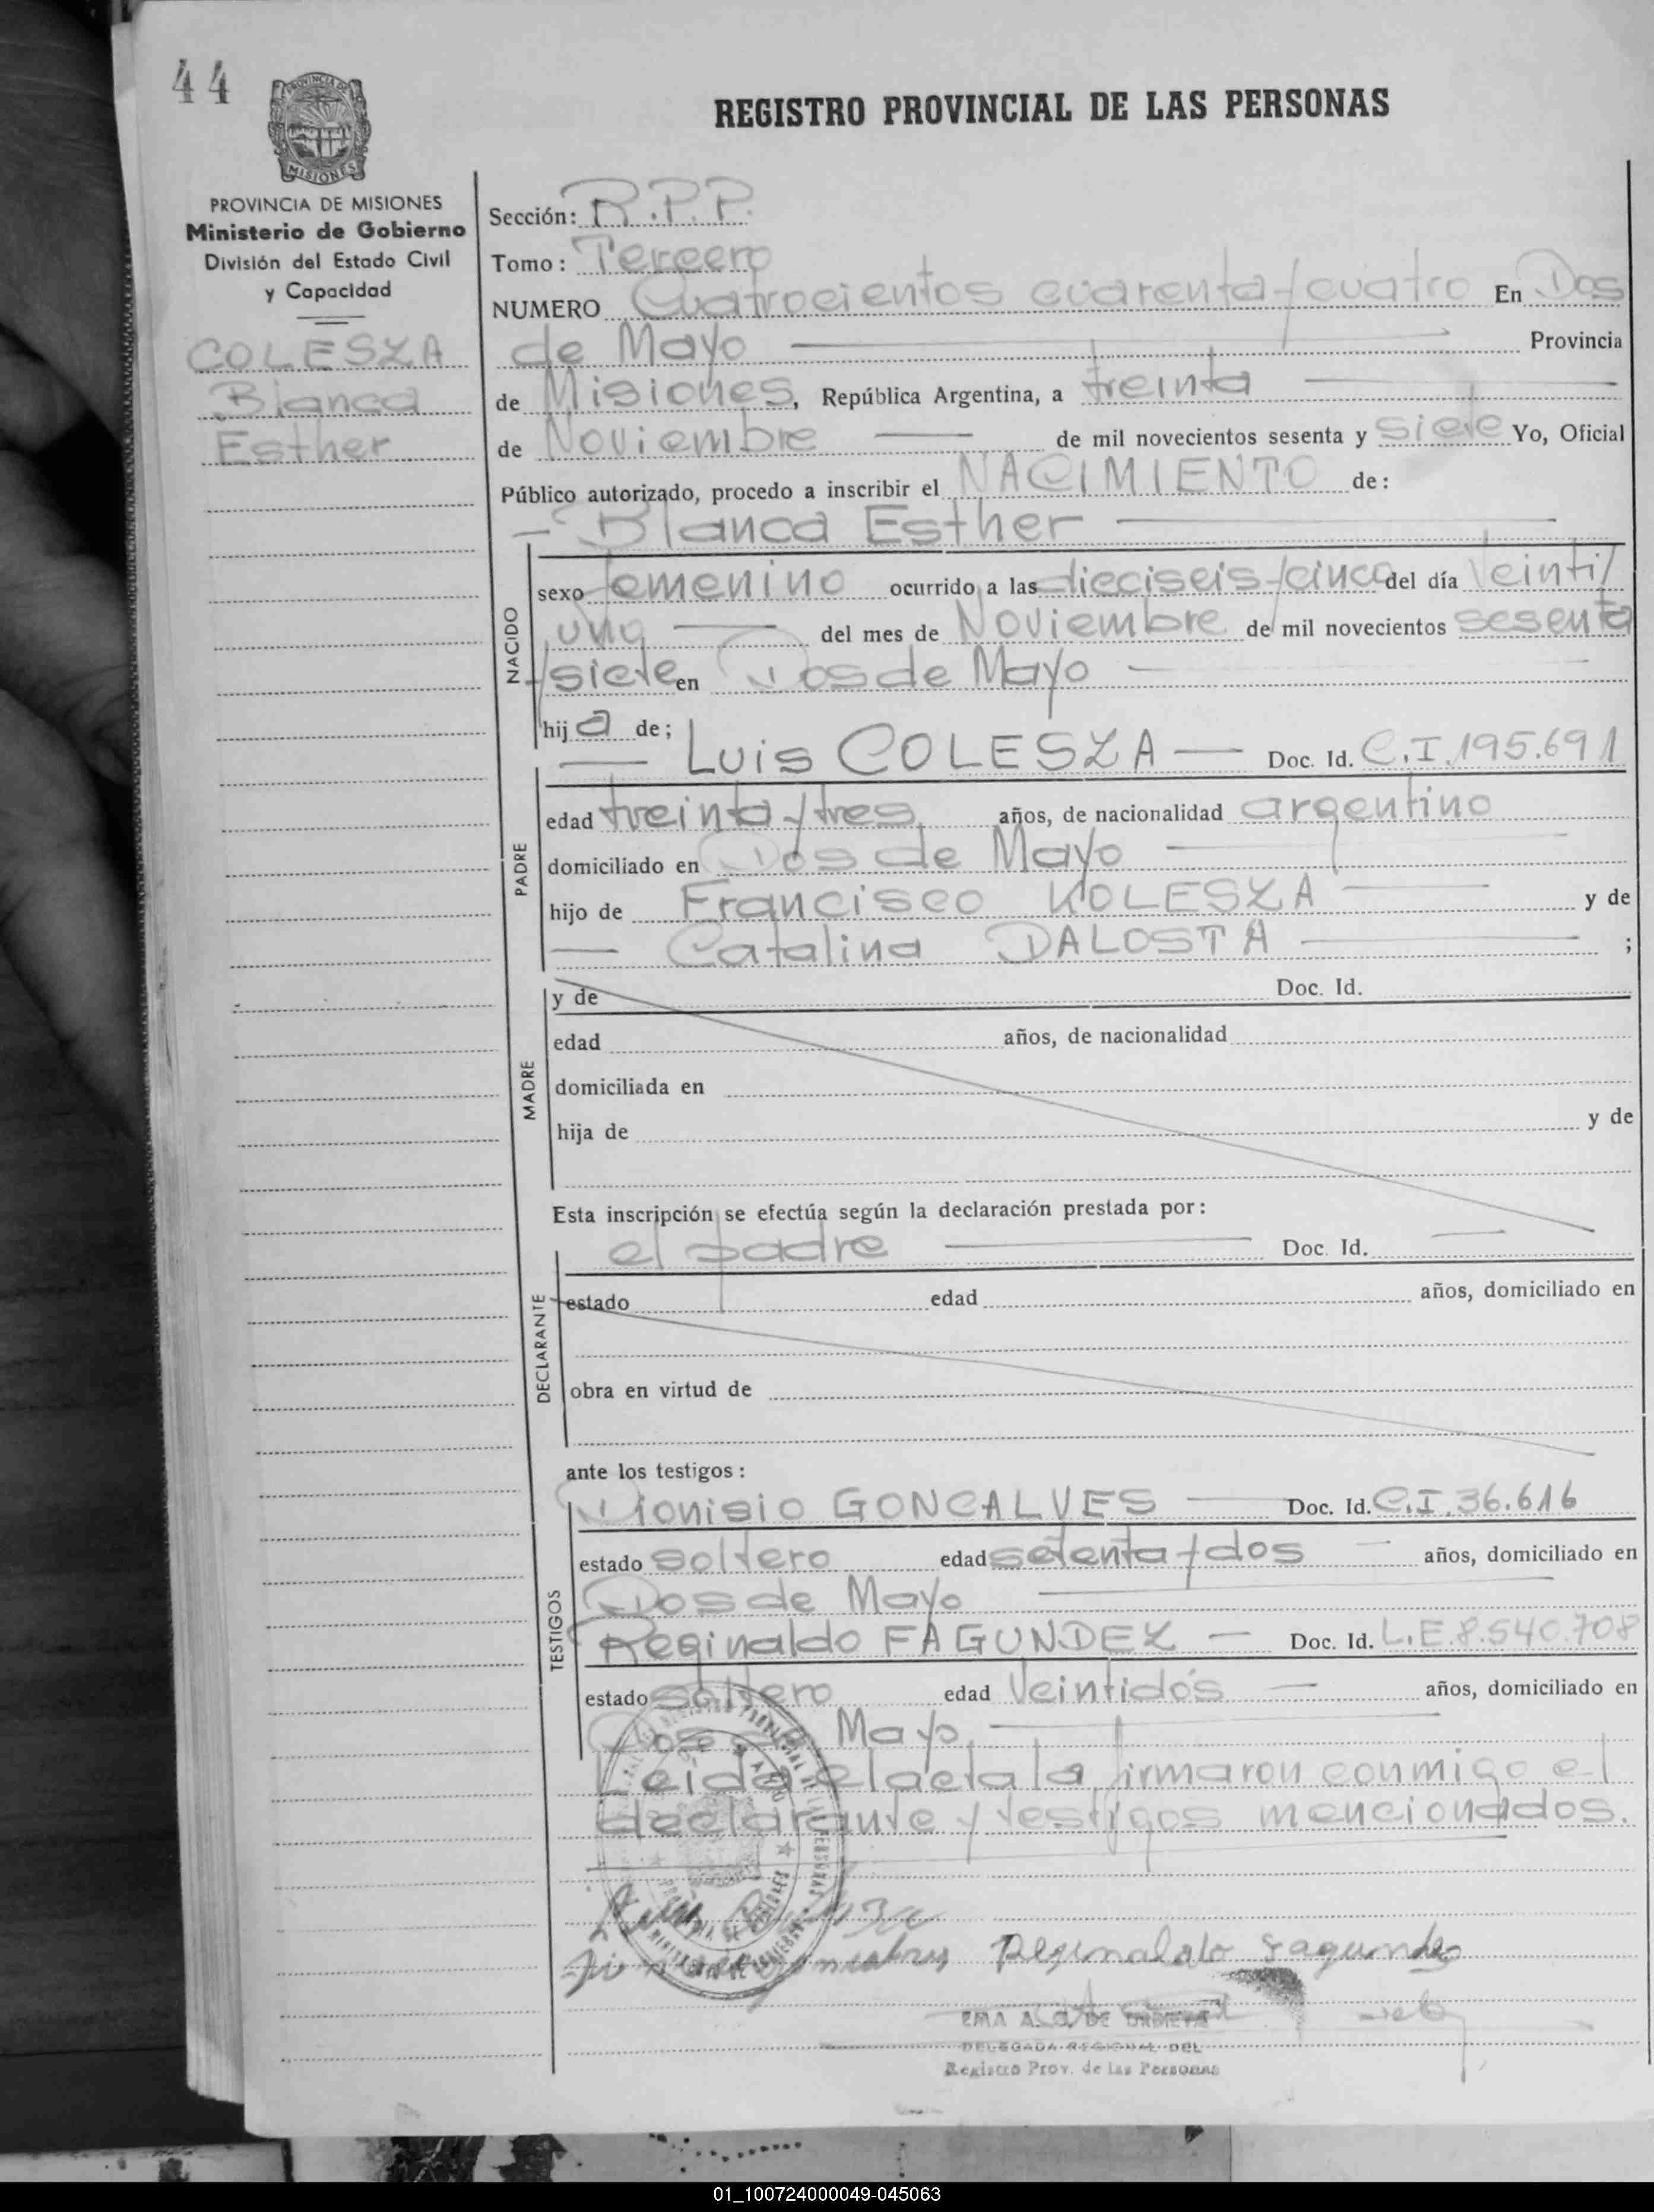 44
REGISTRO PROVINCIAL DE LAS PERSONAS
PROVINCIA DE MISIONES
Ministerio de Gobierno
División del Estado Civil
y Capacidad
COLESZA
Blanca
Esther
Sección: R.P.P.
Tomo: Tercero
NUMERO Cuatrocientos cuarenta y cuatro En Dos
de Mayo Provincia
de Misiones, República Argentina, a treinta
de Noviembre de mil novecientos sesenta y siete Yo, Oficial
Público autorizado, procedo a inscribir el NACIMIENTO de:
Blanca Esther
NACIDO
sexo femenino ocurrido a las dieciseis y cinco del día Veinti
uno del mes de Noviembre de mil novecientos sesenta
y siete en Dos de Mayo
hija de;
Luis COLESZA Doc. Id. C.I. 195.691
PADRE
edad treinta y tres años, de nacionalidad argentino
domiciliado en Dos de Mayo
hijo de Francisco KOLESZA y de
Catalina DALOSTA ;
MADRE
y de Doc. Id.
edad años, de nacionalidad
domiciliada en
hija de y de
Esta inscripción se efectúa según la declaración prestada por:
el padre Doc. Id.
DECLARANTE
estado edad años, domiciliado en
obra en virtud de
ante los testigos:
TESTIGOS
Dionisio GONCALVES Doc. Id. C.I. 36.616
estado soltero edad setenta y dos años, domiciliado en
Dos de Mayo
Reginaldo FAGUNDEZ Doc. Id. L.E. 8.540.708
estado soltero edad Veintidós años, domiciliado en
Dos de Mayo.
Leida el acta la firmaron conmigo el
declarante y testigos mencionados.
Reginaldo Fagundes
EMA A. DE
DELEGADA REGIONAL DEL
Registro Prov. de las Personas
01_100724000049-045063